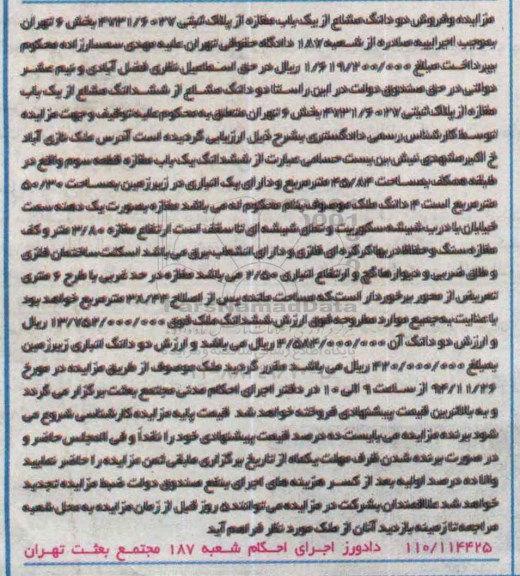 مزایده وفروش دو دانگ مشاع از یک باب مغازه از پلاک ثبتی ۴۷۳۱/۶۰۲۷ بخش ۶ تهران
بموجب اجراییه صادره از شعبه ۱۸۷ دادگاه حقوقی تهران علیه مهدی سمسارزاده محکوم
بپرداخت مبلغ ۱/۶۱۹/۲۰۰/۰۰۰ ریال در حق اسماعیل نظری فضل آبادی و نیم عشر
دولتی در حق صندوق دولت در این راستا دو دانگ مشاع از ششدانگ مشاع از یک باب
مغازه از پلاک ثبتی ۴۷۳۱/۶۰۲۷ بخش ۶ تهران متعلق به محکوم علیه توقیف و جهت مزایده
توسط کارشناس رسمی دادگستری بشرح ذیل ارزیابی گردیده است آدرس ملک نازی آباد
خ اکبر مشهدی نبش بن بست حسامی عبارت از ششدانگ یک باب مغازه قطعه سوم واقع در
طبقه همکف بمساحت ۴۵/۸۴ مترمربع و دارای یک انباری در زیرزمین بمساحت ۵۰/۳۰
مترمربع است ۴ دانگ ملک موصوف بنام محکوم له می باشد مغازه بصورت یک دهنه سمت
خیابان با درب شیشه سکوریت و نمای شیشه ای تا سقف است ارتفاع مغازه ۳/۸۰ متر و کف
مغازه سنگ و حفاظ دربها کرکره ای فلزی و دارای انشعاب برق می باشد اسکلت ساختمان فلزی
و طاق ضربی و دیوارها گچ و ارتفاع انباری ۲/۵۰ می باشد مغازه در حد غربی با طرح ۶ متری
تعریض از معبر برخوردار است که مساحت مانده پس از اصلاح ۳۸/۴۴ مترمربع خواهد بود
با عنایت به جمیع موارد مطروحه فوق ارزش ششدانگ ملک فوق ۱۳/۷۵۲/۰۰۰/۰۰۰ ریال
و ارزش دو دانگ آن ۴/۵۸۴/۰۰۰/۰۰۰ ریال می باشد و ارزش دو دانگ انباری زیرزمین
بمبلغ ۴۲۰/۰۰۰/۰۰۰ ریال می باشد مقرر گردید ملک موصوف از طریق مزایده در مورخ
۹۴/۱۱/۲۶ از ساعت ۹ الی ۱۰ در دفتر اجرای احکام مدنی مجتمع بعثت برگزار می گردد
و به بالاترین قیمت پیشنهادی فروخته خواهد شد قیمت پایه مزایده کارشناسی شروع می
شود برنده مزایده می بایست ده درصد قیمت پیشنهادی خود را نقداً و فی المجلس حاضر و
در صورت برنده شدن ظرف مهلت یکماه از تاریخ برگزاری مابقی ثمن مزایده را حاضر نمایید
والا ده درصد اولیه بعد از کسر هزینه های اجرای بنفع صندوق دولت ضبط مزایده تجدید
خواهد شد علاقمندان بشرکت در مزایده می توانند ۵ روز قبل از زمان مزایده به محل شعبه
مراجعه تا زمینه بازدید آنان از ملک مورد نظر فراهم آید
۱۱۰/۱۱۴۴۲۵ دادورز اجرای احکام شعبه ۱۸۷ مجتمع بعثت تهران